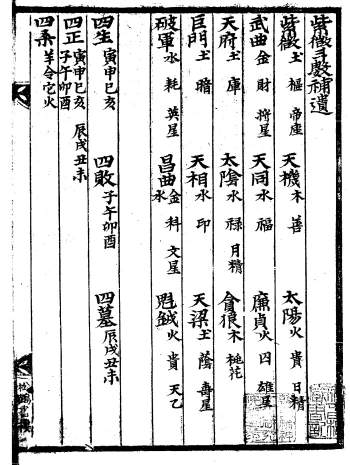 紫微斗數補遺
紫微 土 樞 帝座 天機 木 善 太陽 火 貴 日精
武曲 金 財 將星 天同 水 福 廉貞 火 囚 雄星
天府 土 庫 太陰 水 祿 月精 貪狼 木 桃花
巨門 土 暗 天相 水 印 天梁 土 蔭 壽星
破軍 水 耗 英星 昌曲 金水 科 文星 魁鉞 火 貴 天乙
四生 寅申巳亥 四敗 子午卯酉 四墓 辰戌丑未
四正 寅申巳亥 子午卯酉 辰戌丑未
四柔 羊令它火